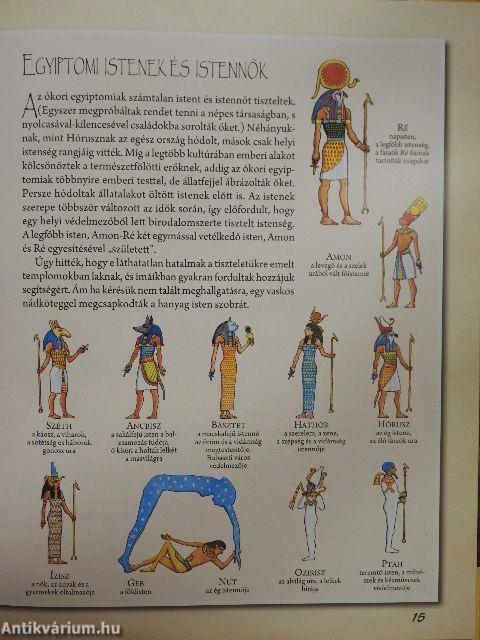 EGYIPTOMI ISTENEK ÉS ISTENNŐK
Az ókori egyiptomiak számtalan istent és istennőt tiszteltek.
(Egyszer megpróbáltak rendet tenni a népes társaságban, s
nyolcasával-kilencesével családokba sorolták őket.) Néhányuk-
nak, mint Hórusznak az egész ország hódolt, mások csak helyi
istenség rangjáig vitték. Míg a legtöbb kultúrában emberi alakot
kölcsönöztek a természetfölötti erőknek, addig az ókori egyip-
tomiak többnyire emberi testtel, de állatfejjel ábrázolták őket.
Persze hódoltak állatalakot öltött istenek előtt is. Az istenek
szerepe többször változott az idők során, így előfordult, hogy
egy helyi védelmezőből lett birodalomszerte tisztelt istenség.
A legfőbb isten, Amon-Ré két egymással vetélkedő isten, Amon
és Ré egyesítésével „született”.
Úgy hitték, hogy e láthatatlan hatalmak a tiszteletükre emelt
templomokban laknak, és imáikban gyakran fordultak hozzájuk
segítségért. Ám ha kérésük nem talált meghallgatásra, egy vaskos
nádköteggel megcsapkodták a hanyag isten szobrát.
RÉ
napisten,
a legfőbb istenség,
a fáraók Ré fiainak
tartották magukat
AMON
a levegő és a szelek
urából vált főistenné
SZÉTH
a káosz, a viharok,
a sötétség és háborúk
gonosz ura
ANUBISZ
a sakálfejű isten a bal-
zsamozás tudója,
ő kíséri a holtak lelkét
a másvilágra
BASZTET
a macskafejű istennő
az öröm és a vidámság
megtestesítője,
Bubaszti város
védelmezője
HATHOR
a szerelem, a zene,
a szépség és a vidámság
istennője
HÓRUSZ
az ég istene,
az élő fáraók ura
ÍZISZ
a nők, az anyák és a
gyermekek oltalmazója
GEB
a földisten
NUT
az ég istennője
OZIRISZ
az alvilág ura, a lelkek
bírája
PTAH
teremtő isten, a művé-
szek és kézművesek
védelmezője
15
Antikvárium.hu